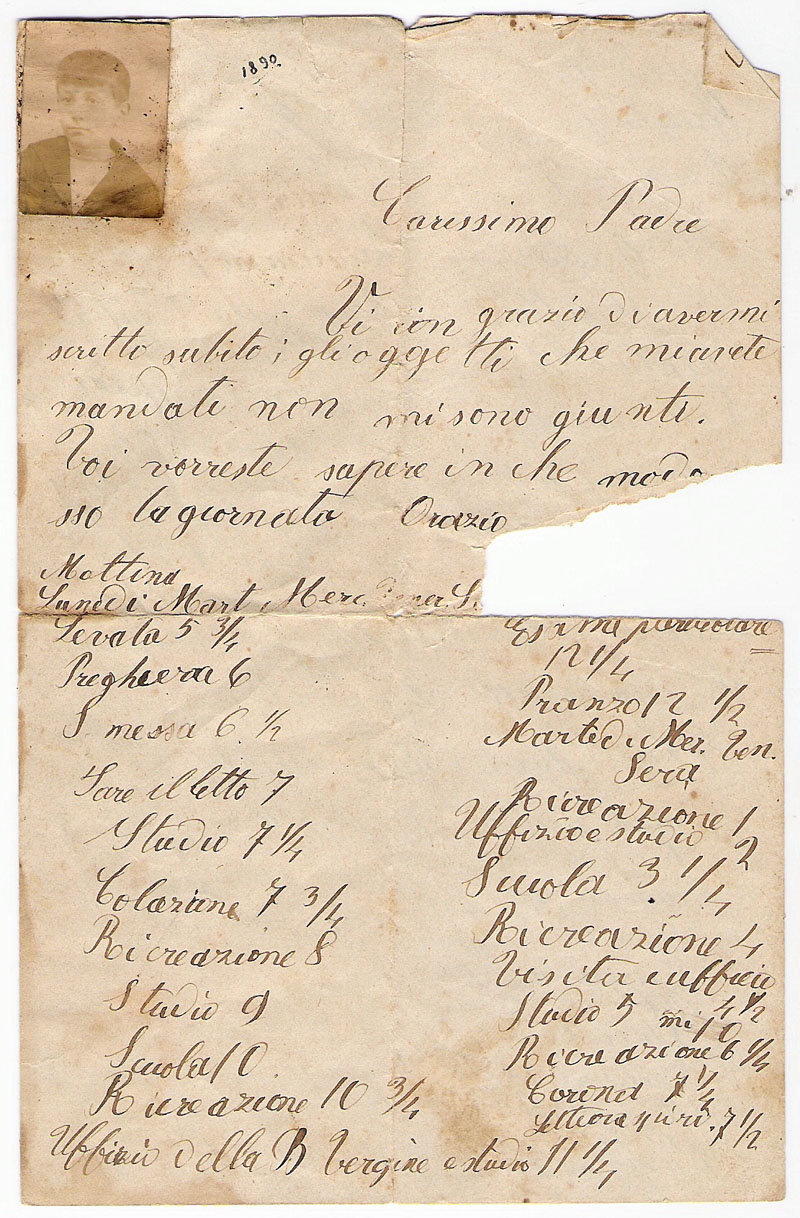 1890.
Carissimo Padre
Vi rin grazio di avermi
scritto subito; gli oggetti che mi avete
mandati non mi sono giunti.
Voi vorreste sapere in che modo
sso la giornata Orazio
Mattina
Lunedi Mart Merc.
Levata 5 3/4
Preghiera 6
S messa 6 1/2
Fare il letto 7
Studio 7 1/4
Colazione 7 3/4
Ricreazione 8
Studio 9
Scuola 10
Ricreazione 10 3/4
Uffizio della B Vergine e studio 11 1/4
Esame particolare
12 1/4
Pranzo 12 1/2
Martedi Mer. Ven.
Sera
Ricreazione 1
Uffizio e studio 2
Scuola 3 1/4
Ricreazione 4
Visita e ufficio
4 1/2
Studio 5 mi 10
Ricreazione 6 1/4
Corona 7 1/4
7 1/2